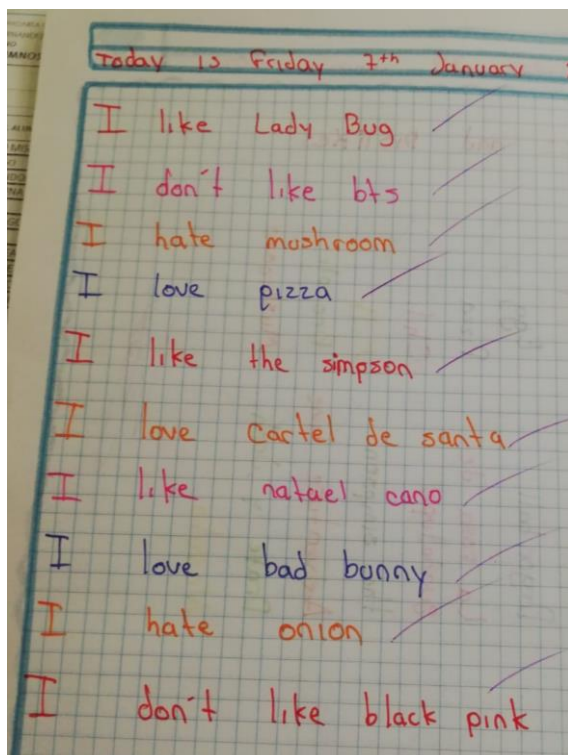 Today is Friday 7th January
I like Lady Bug
I don't like bts
I hate mushroom
I love pizza
I like the simpson
I love cartel de santa
I like natael cano
I love bad bunny
I hate onion
I don't like black pink